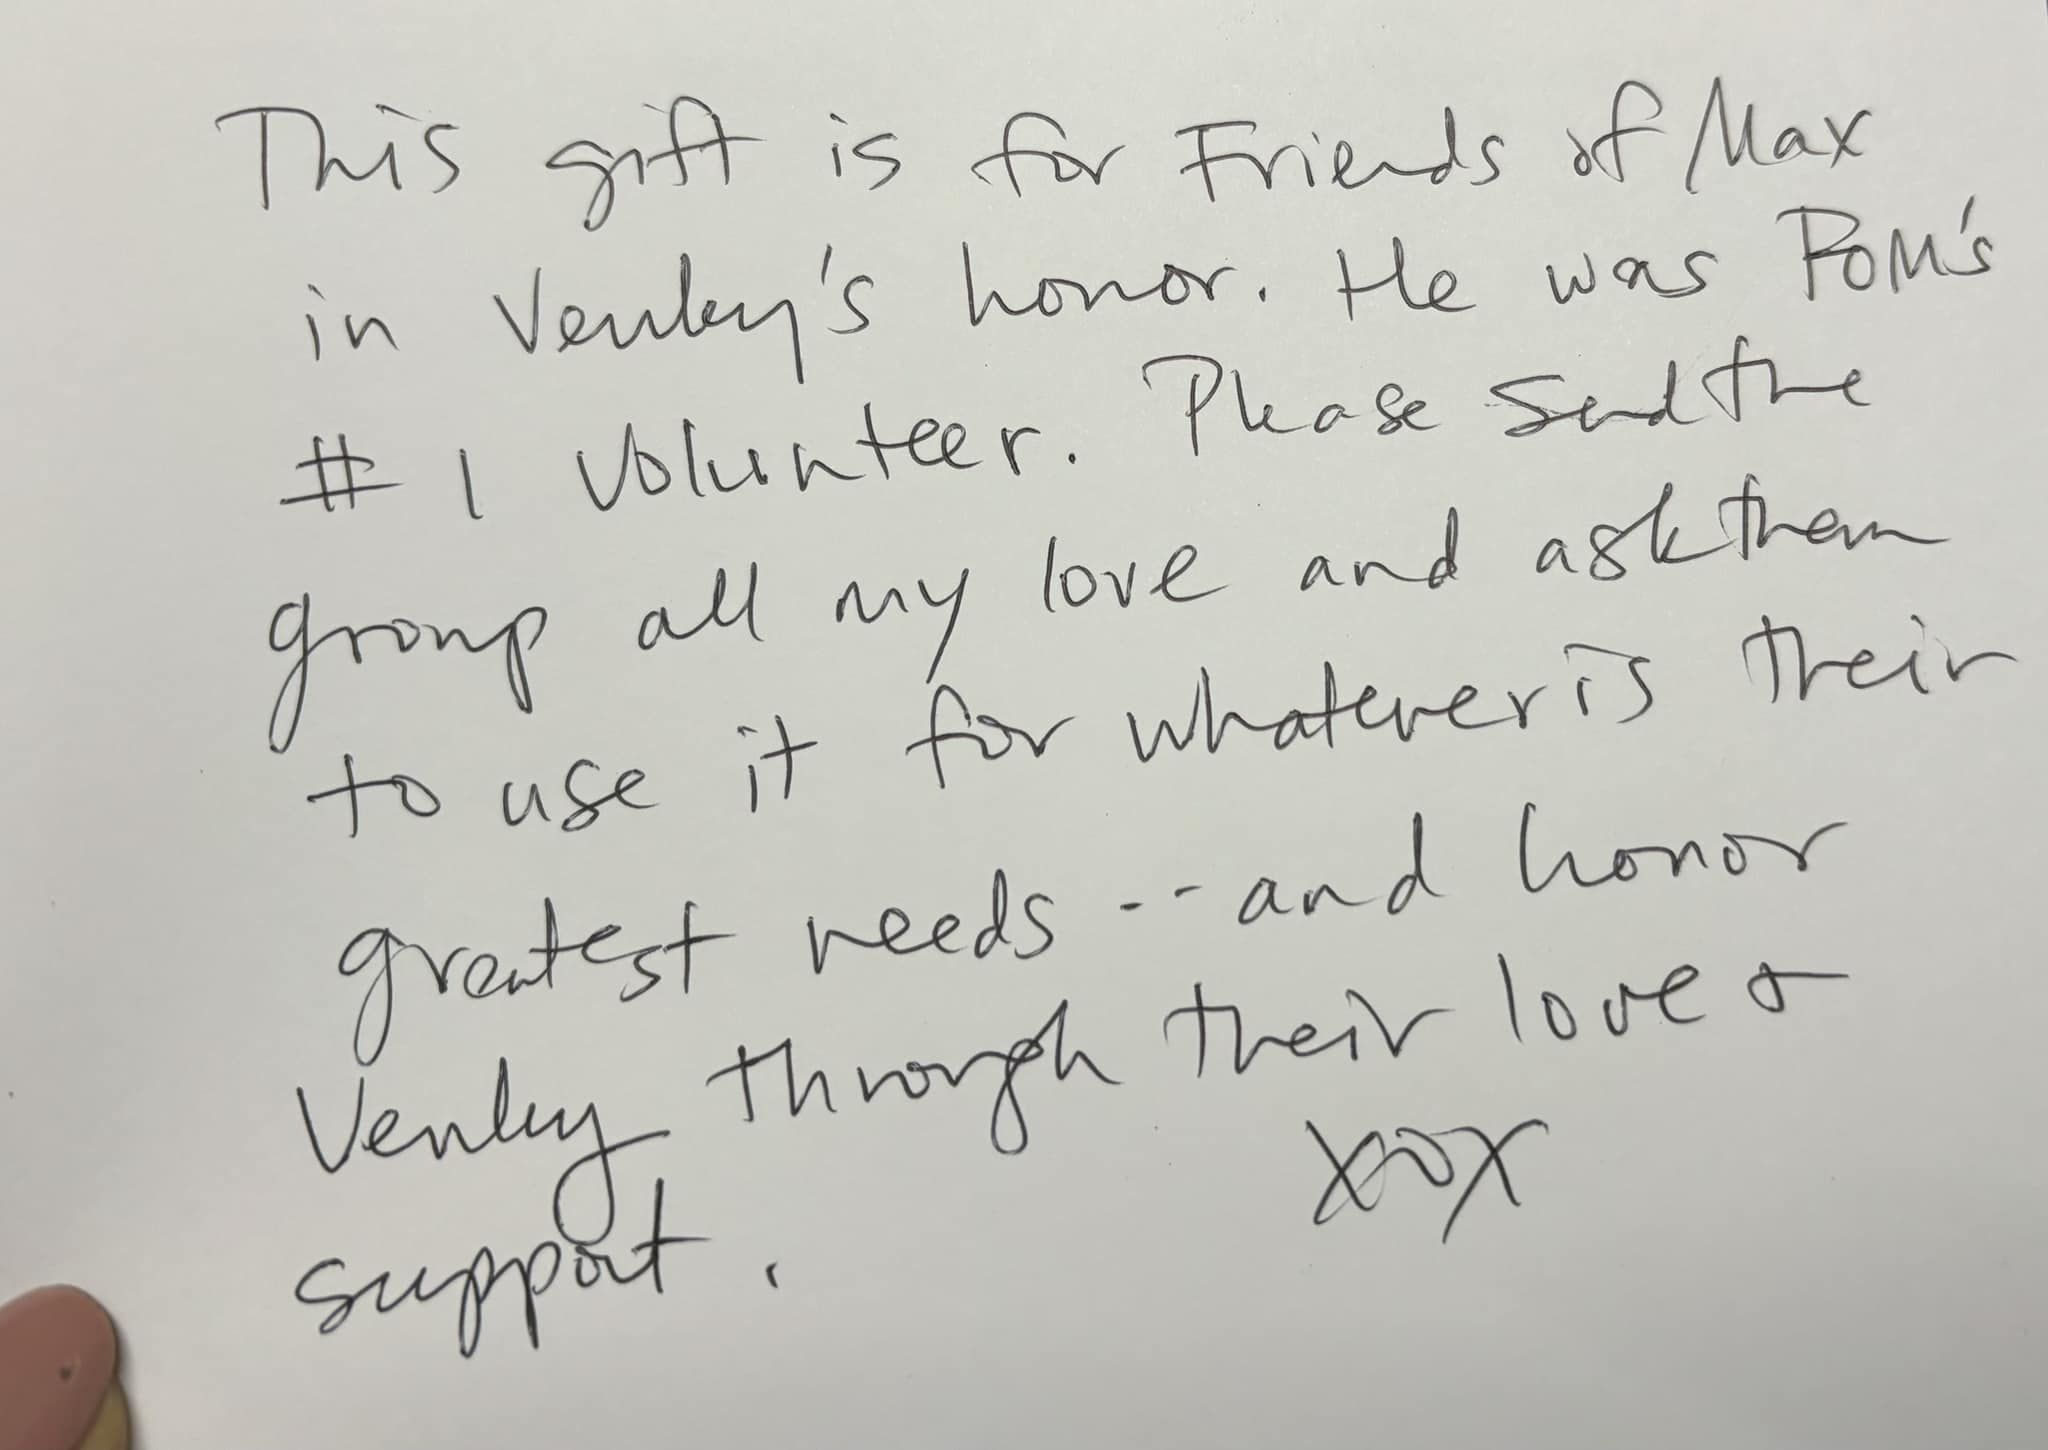 This gift is for Friends of Max
in Venley's honor. He was FOM's
# 1 volunteer. Please send the
group all my love and ask them
to use it for whatever is their
greatest needs -- and honor
Venley through their love &
support. xox